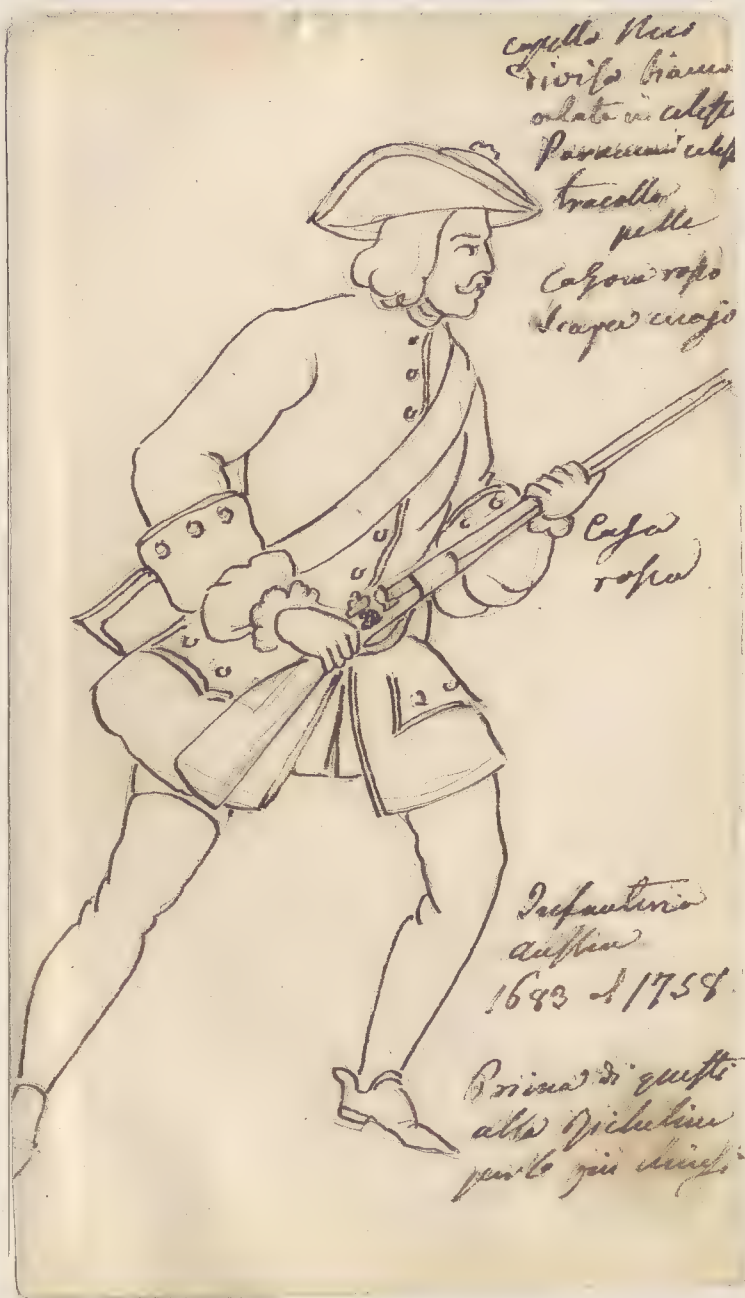 capello Nero
divisa bianca
orlate in celeste
Paramani celes
tracollo
pelle
Calzone rosso
Scarpe cuojo
Casa
rossa
Infanteria
austria
1683 al 1758
Prima di queste
alla
per le più